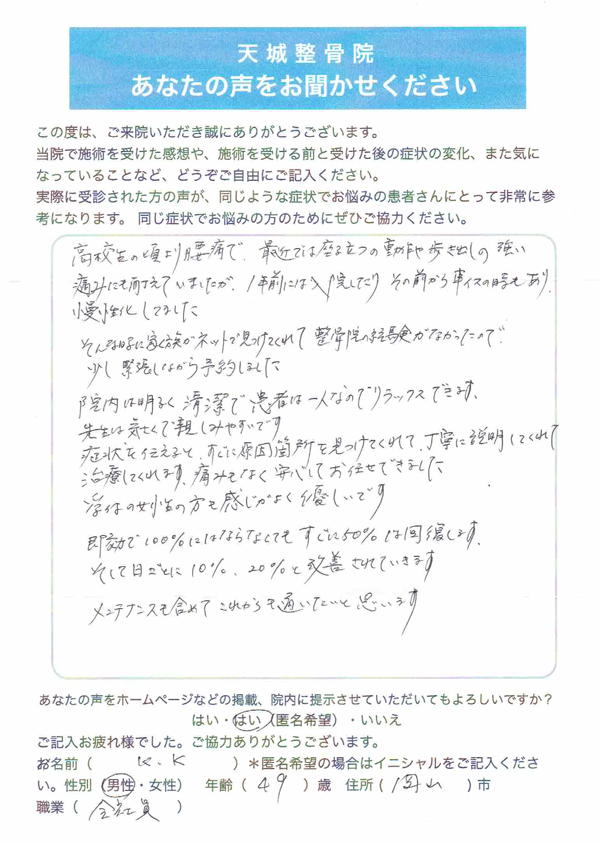 天城整骨院
あなたの声をお聞かせください
この度は、ご来院いただき誠にありがとうございます。
当院で施術を受けた感想や、施術を受ける前と受けた後の症状の変化、また気に
なっていることなど、どうぞご自由にご記入ください。
実際に受診された方の声が、同じような症状でお悩みの患者さんにとって非常に参
考になります。 同じ症状でお悩みの方のためにぜひご協力ください。
高校生の頃より腰痛で、最近では座る立つの動作や歩き出しの強い
痛みにも耐えていましたが、1年前には入院したり その前から車イスの時もあり、
慢性化してました
そんな時に家族がネットで見つけてくれて 整骨院の経験がなかったので、
少し緊張しながら予約しました
院内は明るく 清潔で患者は一人なのでリラックスできます、
先生は気さくで親しみやすいです
症状を伝えると、すぐに原因箇所を見つけてくれて、丁寧に説明してくれて
治療してくれます、痛みもなく 安心してお任せできました
の女性の方も感じがよく優しいです
即効で100%にはならなくても すぐに50%は回復します、
そして日ごとに10%、20%と改善されていきます
メンテナンスも含めてこれからも通いたいと思います
あなたの声をホームページなどの掲載、院内に提示させていただいてもよろしいですか？
はい・はい（匿名希望）・いいえ
ご記入お疲れ様でした。ご協力ありがとうございます。
お名前（ K.K ）＊匿名希望の場合はイニシャルをご記入くださ
い。性別（男性・女性） 年齢（ 49 ）歳 住所（ 岡山 ）市
職業（ 会社員 ）